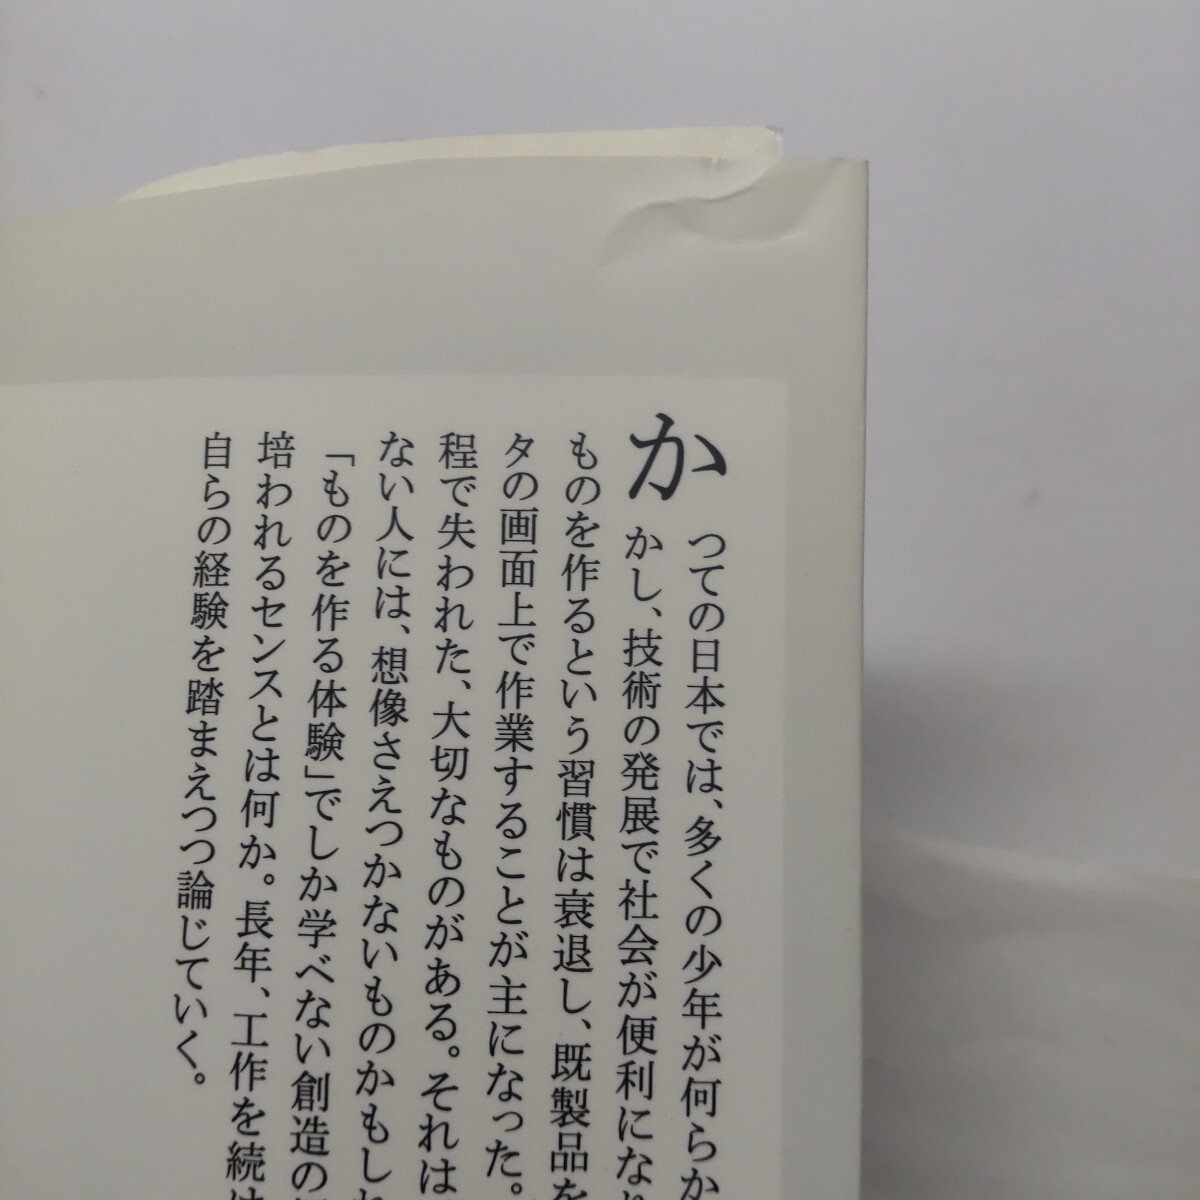 かつての日本では、多くの少年が何らか
かし、技術の発展で社会が便利になり
ものを作るという習慣は衰退し、既製品を
タの画面上で作業することが主になった。
程で失われた、大切なものがある。それは
ない人には、想像さえつかないものかもしれ
「ものを作る体験」でしか学べない創造の
培われるセンスとは何か。長年、工作を続け
自らの経験を踏まえつつ論じていく。